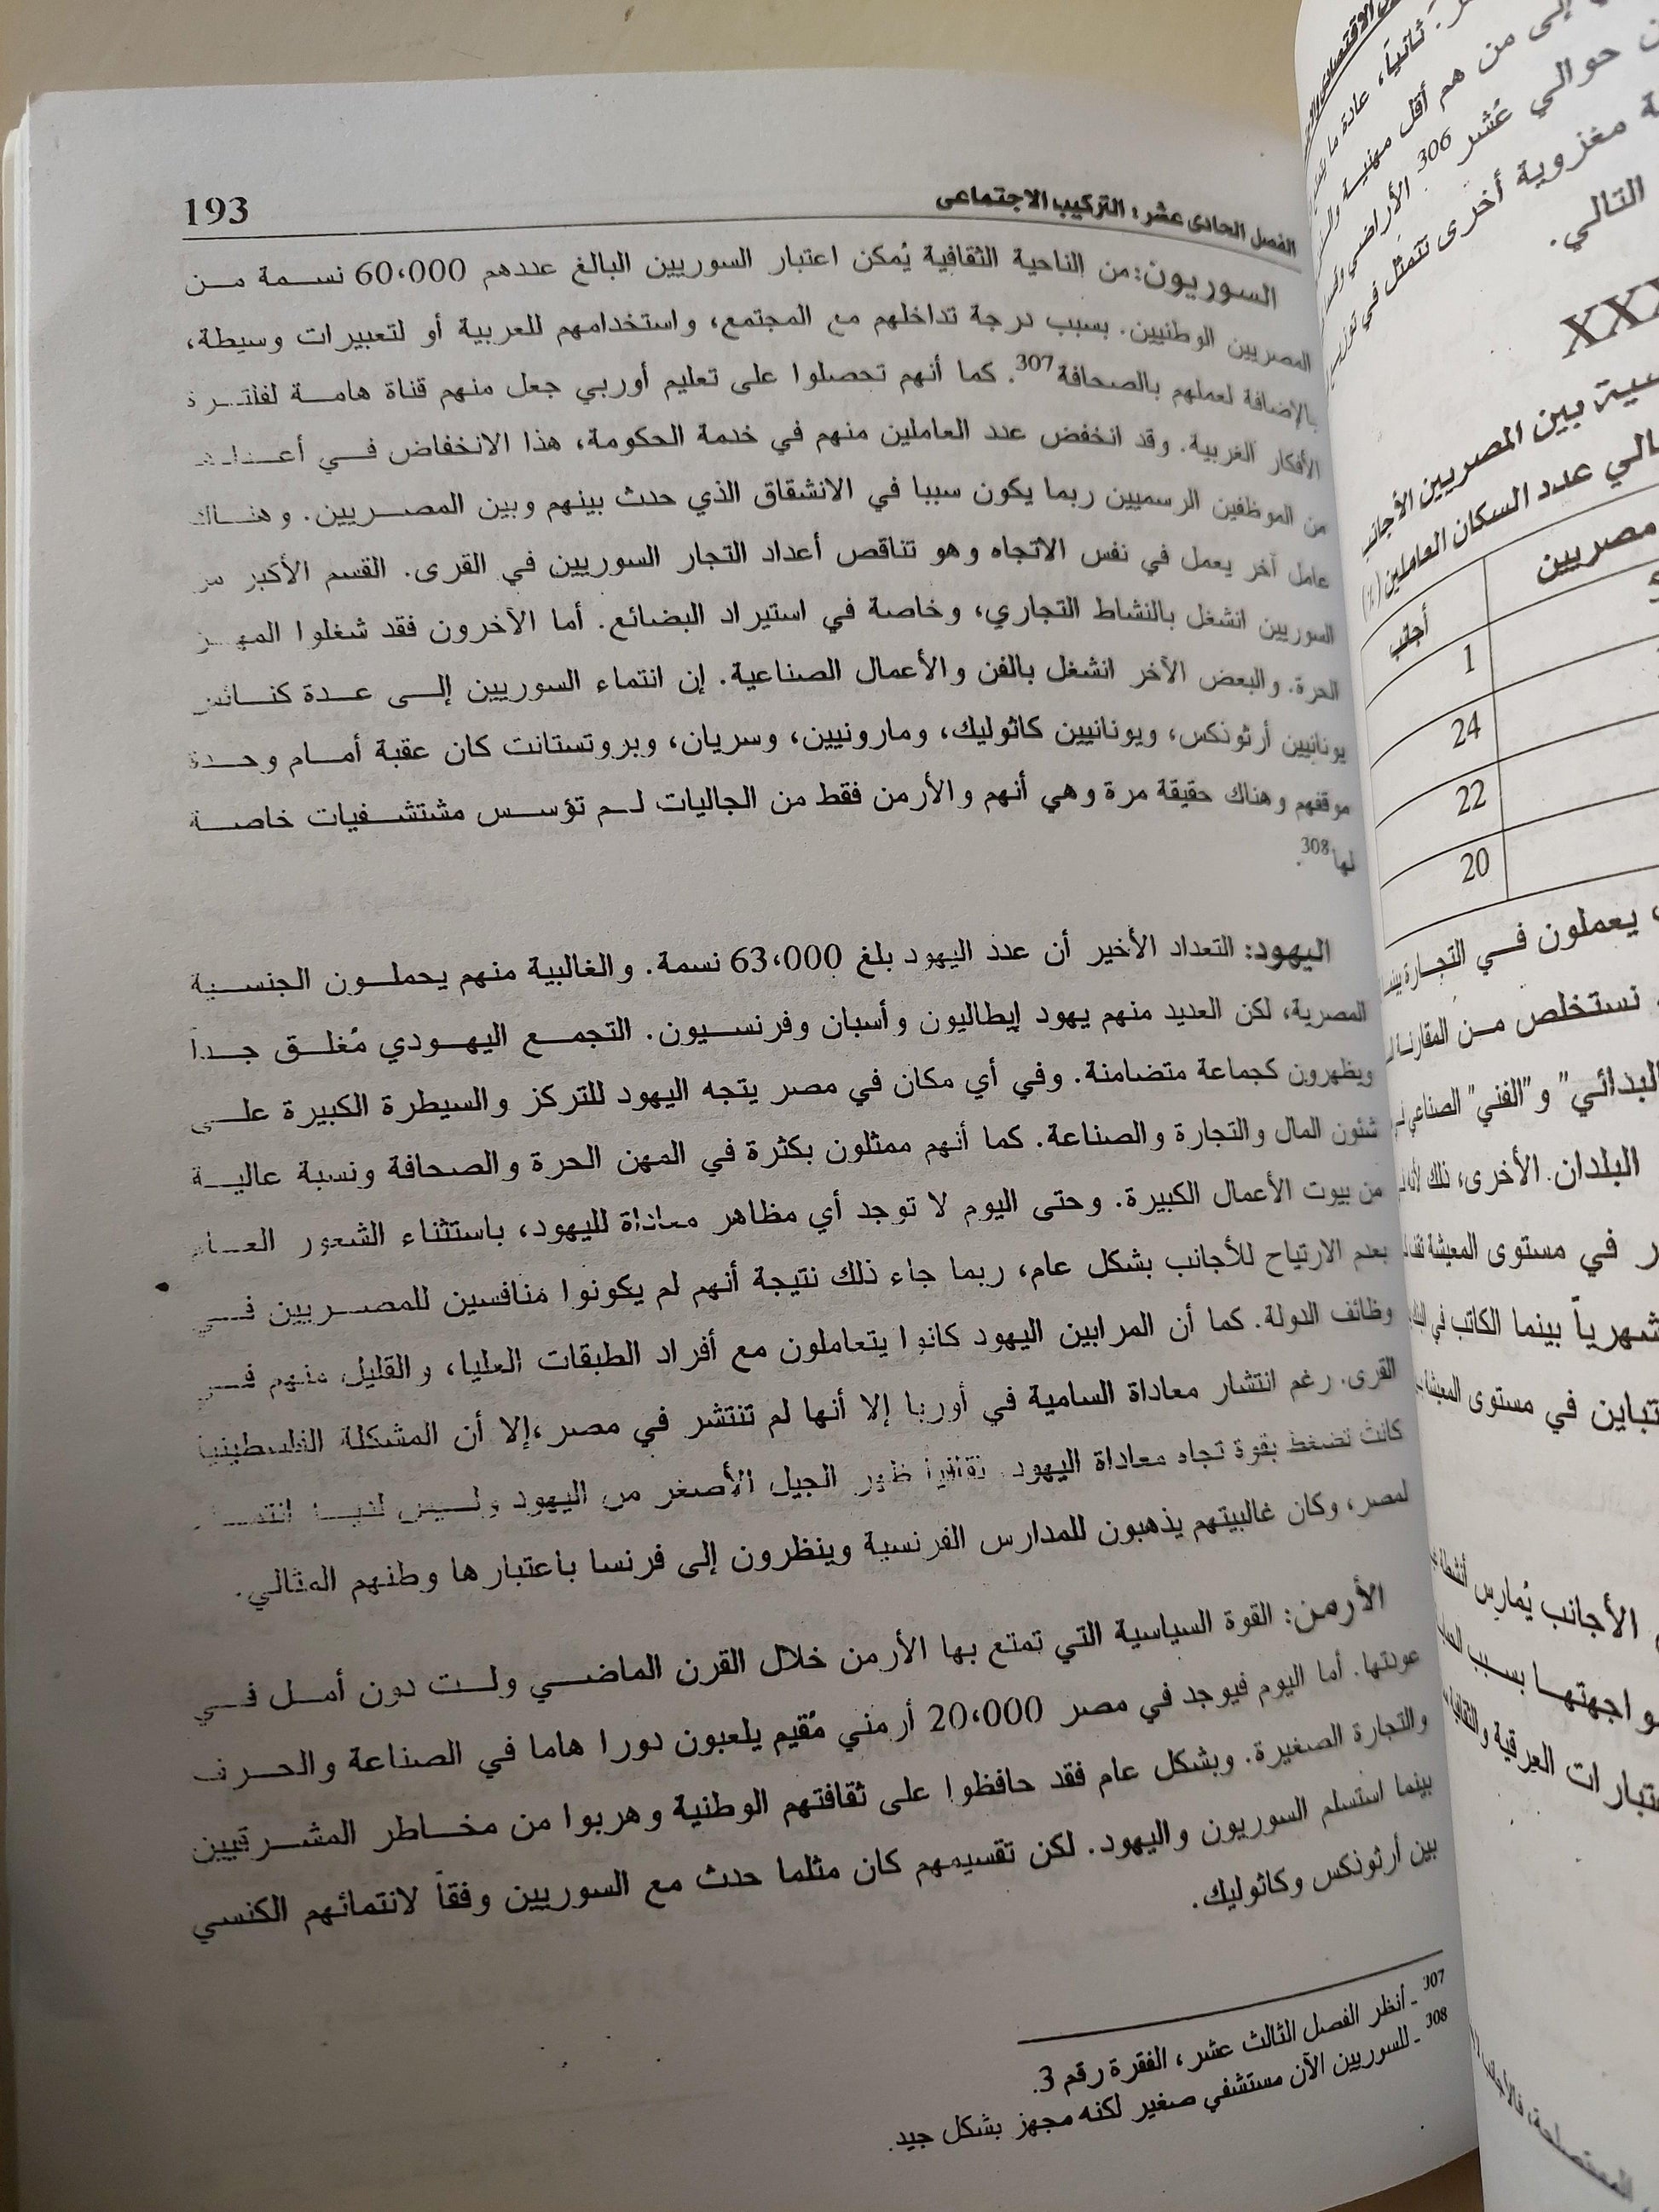 الفصل الحادى عشر: التركيب الاجتماعى
193
السوريون: من الناحية الثقافية يُمكن اعتبار السوريين البالغ عددهم 60،000 نسمة من
المصريين الوطنيين. بسبب درجة تداخلهم مع المجتمع، واستخدامهم للعربية أو لتعبيرات وسيطة،
بالإضافة لعملهم بالصحافة307. كما أنهم تحصلوا على تعليم أوربي جعل منهم قناة هامة لفلترة
الأفكار الغربية. وقد انخفض عدد العاملين منهم في خدمة الحكومة، هذا الانخفاض في
من الموظفين الرسميين ربما يكون سببا في الانشقاق الذي حدث بينهم وبين المصريين. وهناك
عامل آخر يعمل في نفس الاتجاه وهو تناقص أعداد التجار السوريين في القرى. القسم الأكبر من
السوريين انشغل بالنشاط التجاري، وخاصة في استيراد البضائع. أما الآخرون فقد شغلوا المهن
الحرة. والبعض الآخر انشغل بالفن والأعمال الصناعية. إن انتماء السوريين إلى عدة كنائس
يونانيين أرثونكس، ويونانيين كاثوليك، ومارونيين، وسريان، وبروتستانت كان عقبة أمام وحدة
موقفهم وهناك حقيقة مرة وهي أنهم والأرمن فقط من الجاليات لم تؤسس مشتشفيات خاصة
لها308.
اليهود: التعداد الأخير أن عدد اليهود بلغ 63،000 نسمة. والغالبية منهم يحملون الجنسية
المصرية، لكن العديد منهم يهود إيطاليون وأسبان وفرنسيون. التجمع اليهودي مُغلق جداً
ويظهرون كجماعة متضامنة. وفي أي مكان في مصر يتجه اليهود للتركز والسيطرة الكبيرة على
شئون المال والتجارة والصناعة. كما أنهم ممثلون بكثرة في المهن الحرة والصحافة ونسبة عالية
من بيوت الأعمال الكبيرة. وحتى اليوم لا توجد أي مظاهر معاداة لليهود، باستثناء الشعور العام
بعدم الارتياح للأجانب بشكل عام، ربما جاء ذلك نتيجة أنهم لم يكونوا منافسين للمصريين في
وظائف الدولة. كما أن المرابين اليهود كانوا يتعاملون مع أفراد الطبقات العليا، والقليل منهم في
القرى. رغم انتشار معاداة السامية في أوربا إلا أنها لم تنتشر في مصر،إلا أن المشكلة الفلسطينية
كانت تضغط بقوة تجاه معاداة اليهود. ثقافياً ظهر الجيل الأصغر من اليهود وليس لديه انتماء
لمصر، وكان غالبيتهم يذهبون للمدارس الفرنسية وينظرون إلى فرنسا باعتبارها وطنهم المثالي.
الأرمن: القوة السياسية التي تمتع بها الأرمن خلال القرن الماضي ولت دون أمل في
عودتها. أما اليوم فيوجد في مصر 20،000 أرمني مُقيم يلعبون دورا هاما في الصناعة والحرف
والتجارة الصغيرة. وبشكل عام فقد حافظوا على ثقافتهم الوطنية وهربوا من مخاطر المشرقيين
بينما استسلم السوريون واليهود. لكن تقسيمهم كان مثلما حدث مع السوريين وفقاً لانتمائهم الكنسي
بين أرثوذكس وكاثوليك.
307 ـ أنظر الفصل الثالث عشر، الفقرة رقم 3.
308 ـ للسوريين الآن مستشفي صغير لكنه مجهز بشكل جيد.
ثانياً، عادة ما
إلى من هم أقل مهنية
حوالي عُشر 306 الأراضي
مغزوية أخرى تتمثل في
التالي.
XXX
بين المصريين الأجانب
عدد السكان العاملين (٪)
مصريين
أجانب
1
24
22
20
يعملون في التجارة بينما
نستخلص من المقارنة
البدائي" و"الفني" الصناعي
البلدان الأخرى، ذلك
في مستوى المعيشة
شهرياً بينما الكاتب في
تباين في مستوى المعيشة
الأجانب يُمارس أنشطة
بسبب
العرقية